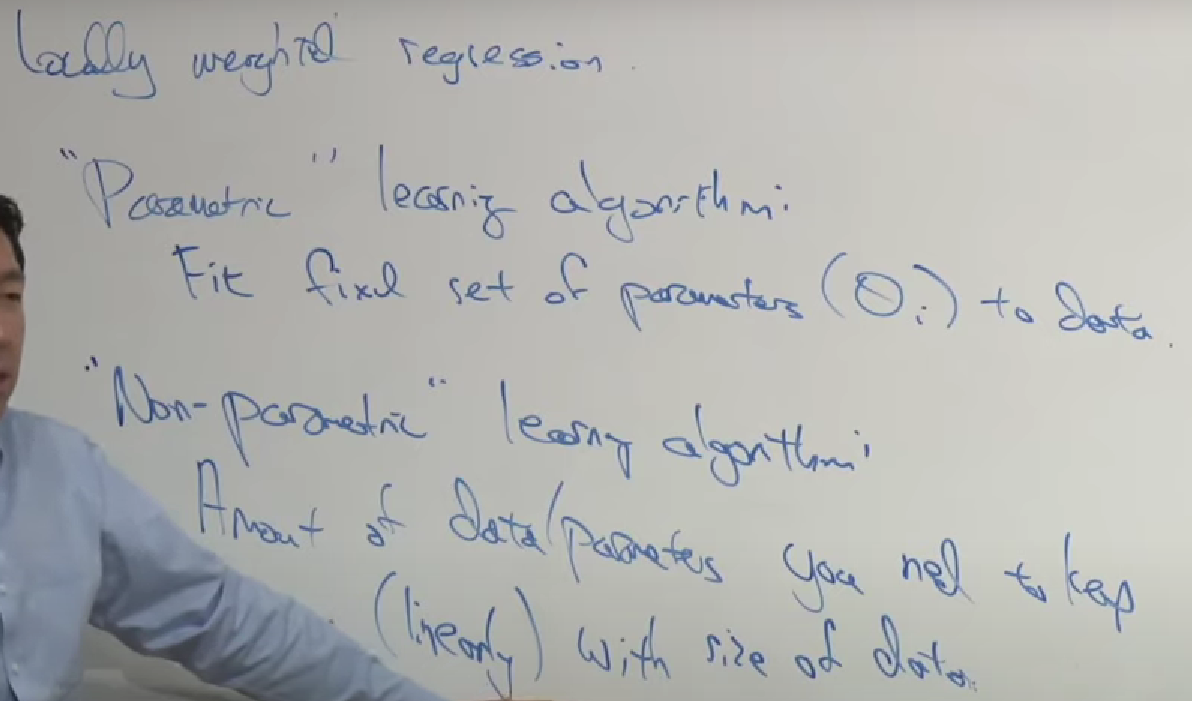 Locally weighted regression.
"Parametric" learning algorithm:
Fit fixed set of parameters (θi) to data.
"Non-parametric" learning algorithm:
Amount of data/parameters you need to keep
(linearly) with size of data.